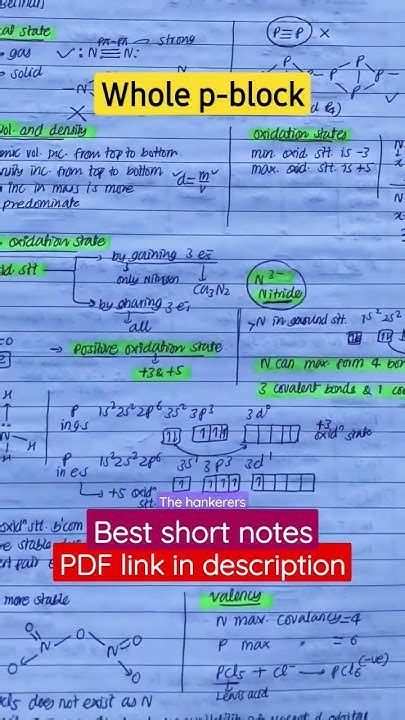 cal state
strong
gas
:N≡N:
P≡P
solid
P
P
P
P
Whole p-block
vol. and density
mic vol. inc. from top to bottom
nsity inc. from top to bottom
d=m/v
inc in mass is more
predominate
oxidation states
min. oxid. stt. is -3
max. oxid. stt. is +5
oxidation state
by gaining 3 es
only Nitrogen
Ca3N2
by sharing 3 es
all
N3-
Nitride
Positive oxidation state
+3 & +5
N in ground stt. 1s² 2s²
N can max form 4 bon
3 covalent bonds & 1 co
P in g.s 1s² 2s² 2p⁶ 3s² 3p³ 3d⁰
+3 oxidn state
P in e.s 1s² 2s² 2p⁶ 3s¹ 3p³ 3d¹
+5 oxidn stt.
H
N
H
The hankerers
oxidn stt. b'com
Best short notes
PDF link in description
more stable
O
O
O
N
N
O
O
valency
N max. covalancy=4
P max " =6
PCl5 + Cl⁻ → PCl6(-ve)
Lewis acid
Cl5 does not exist as N